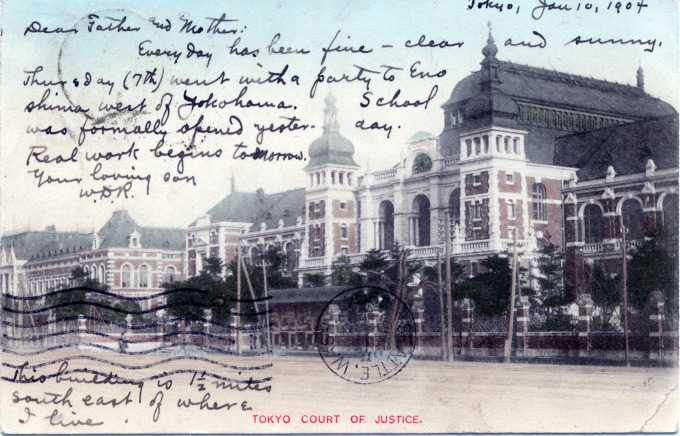 Tokyo, Jan 10, 1904
Dear Father and Mother:
Every day has been fine – clear and sunny.
Thursday (7th) went with a party to Eno
shima west of Yokohama. School
was formally opened yester- day.
Real work begins tomorrow.
Your loving son
W.D.R.
SEATTLE, WASH.
This building is 1½ miles
south east of where
I live.
TOKYO COURT OF JUSTICE.